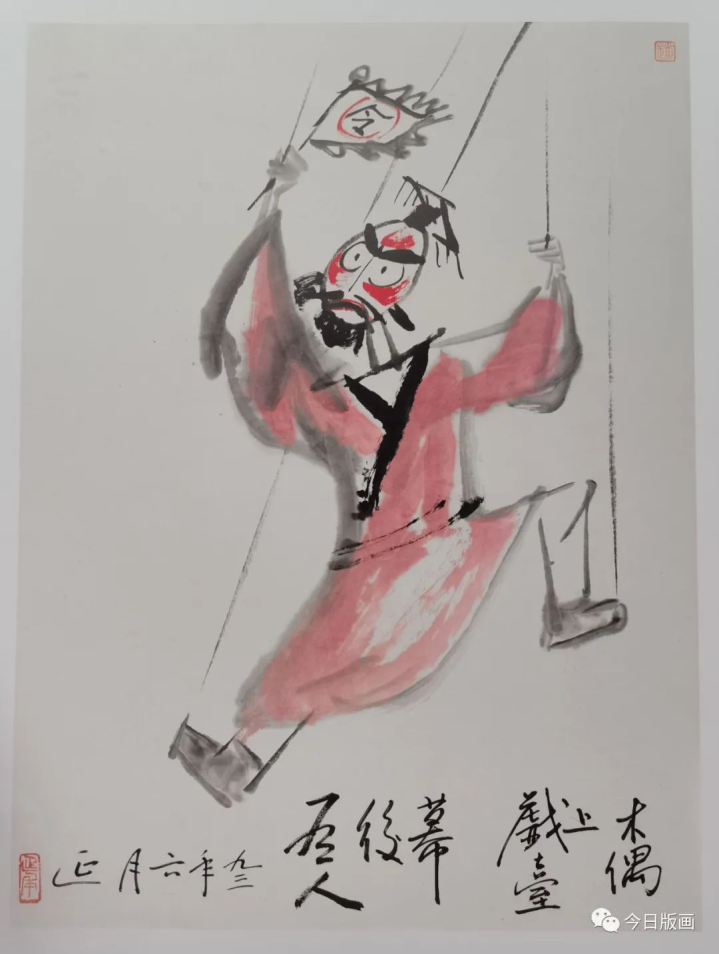 令
木偶
上
戲臺
幕
後
有人
九三年六月 延
今日版画